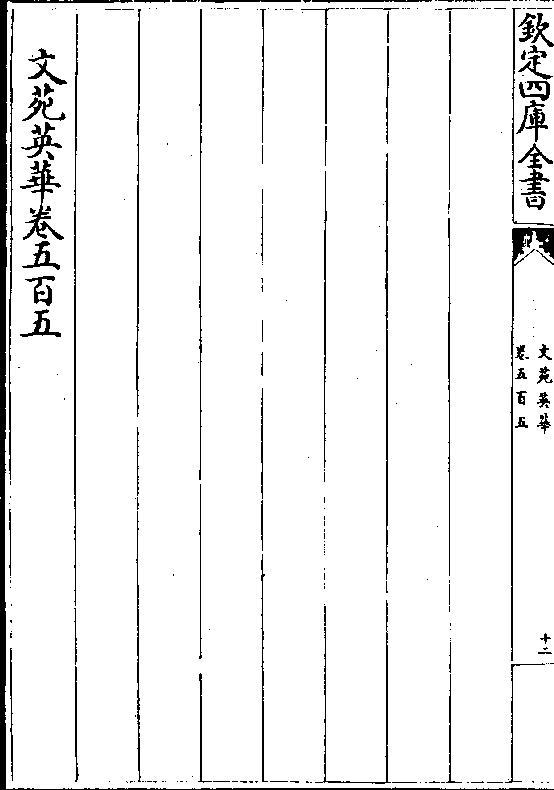 欽定四庫全書
文苑英華
卷五百五
十二
文苑英華卷五百五